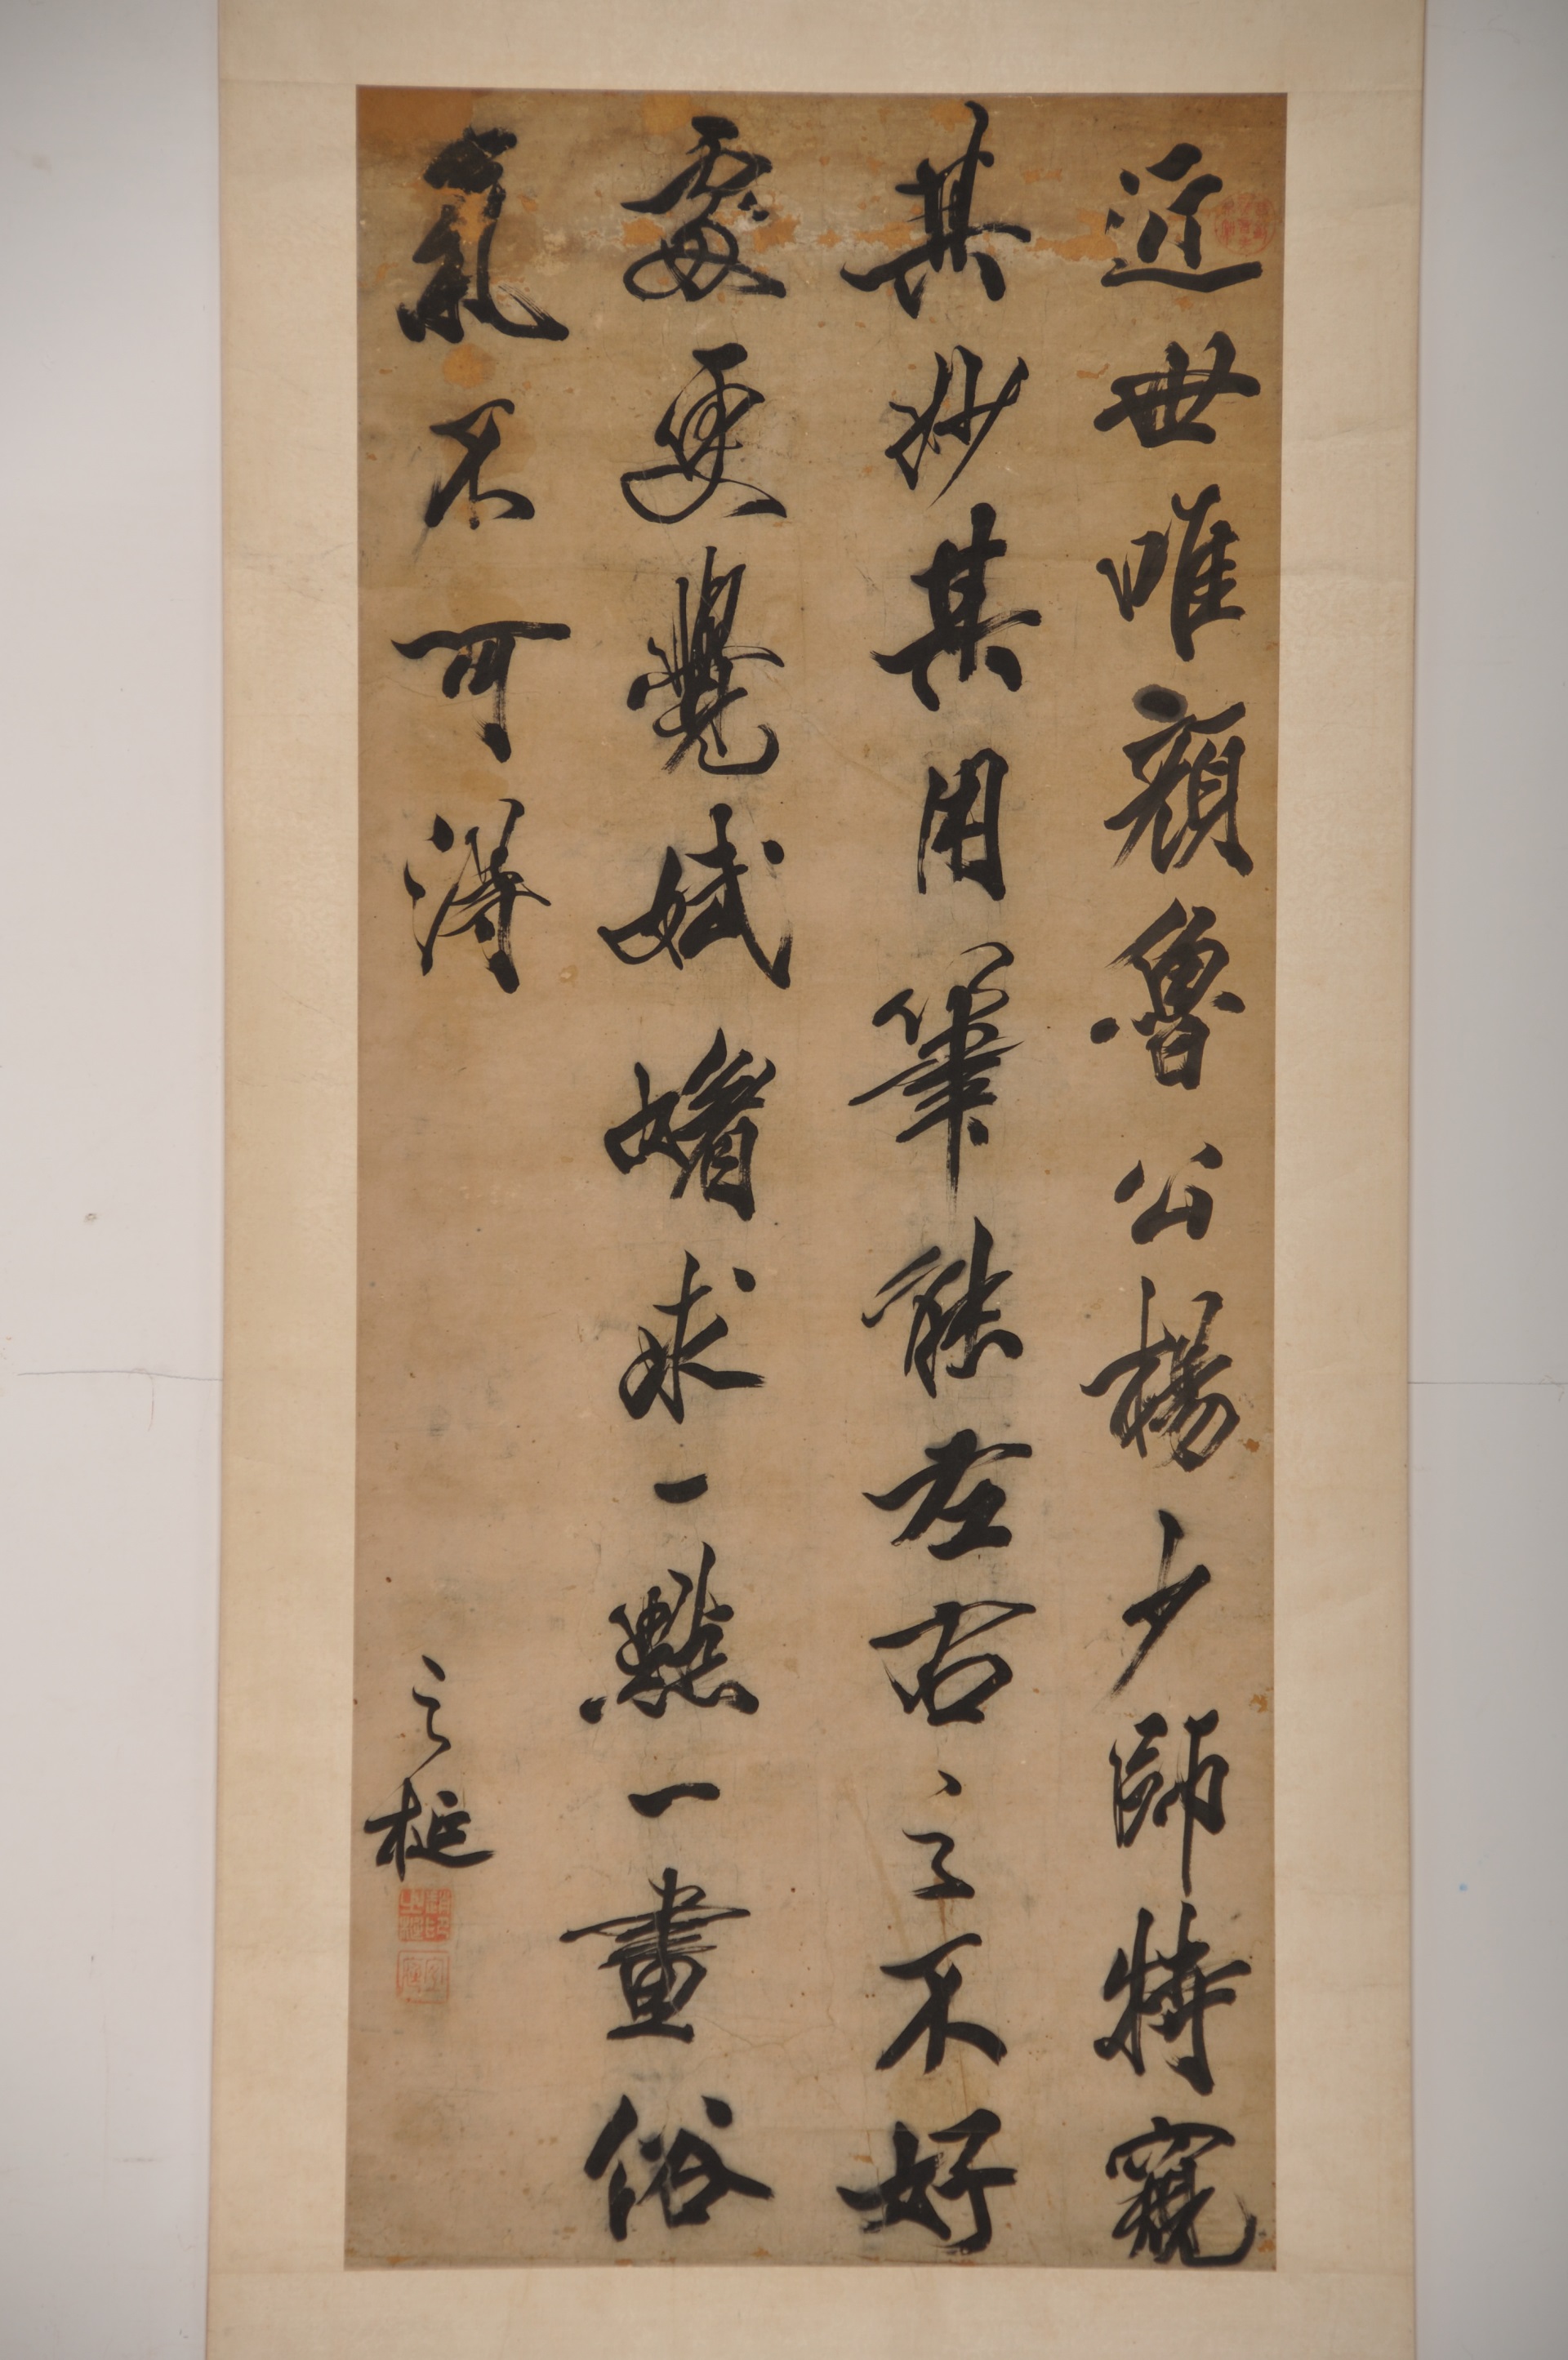 近世唯顔魯公楊少師特窺
其妙其用筆能左右之不好
處更覺娬媚求一點一畫俗
氣不可得
之梴